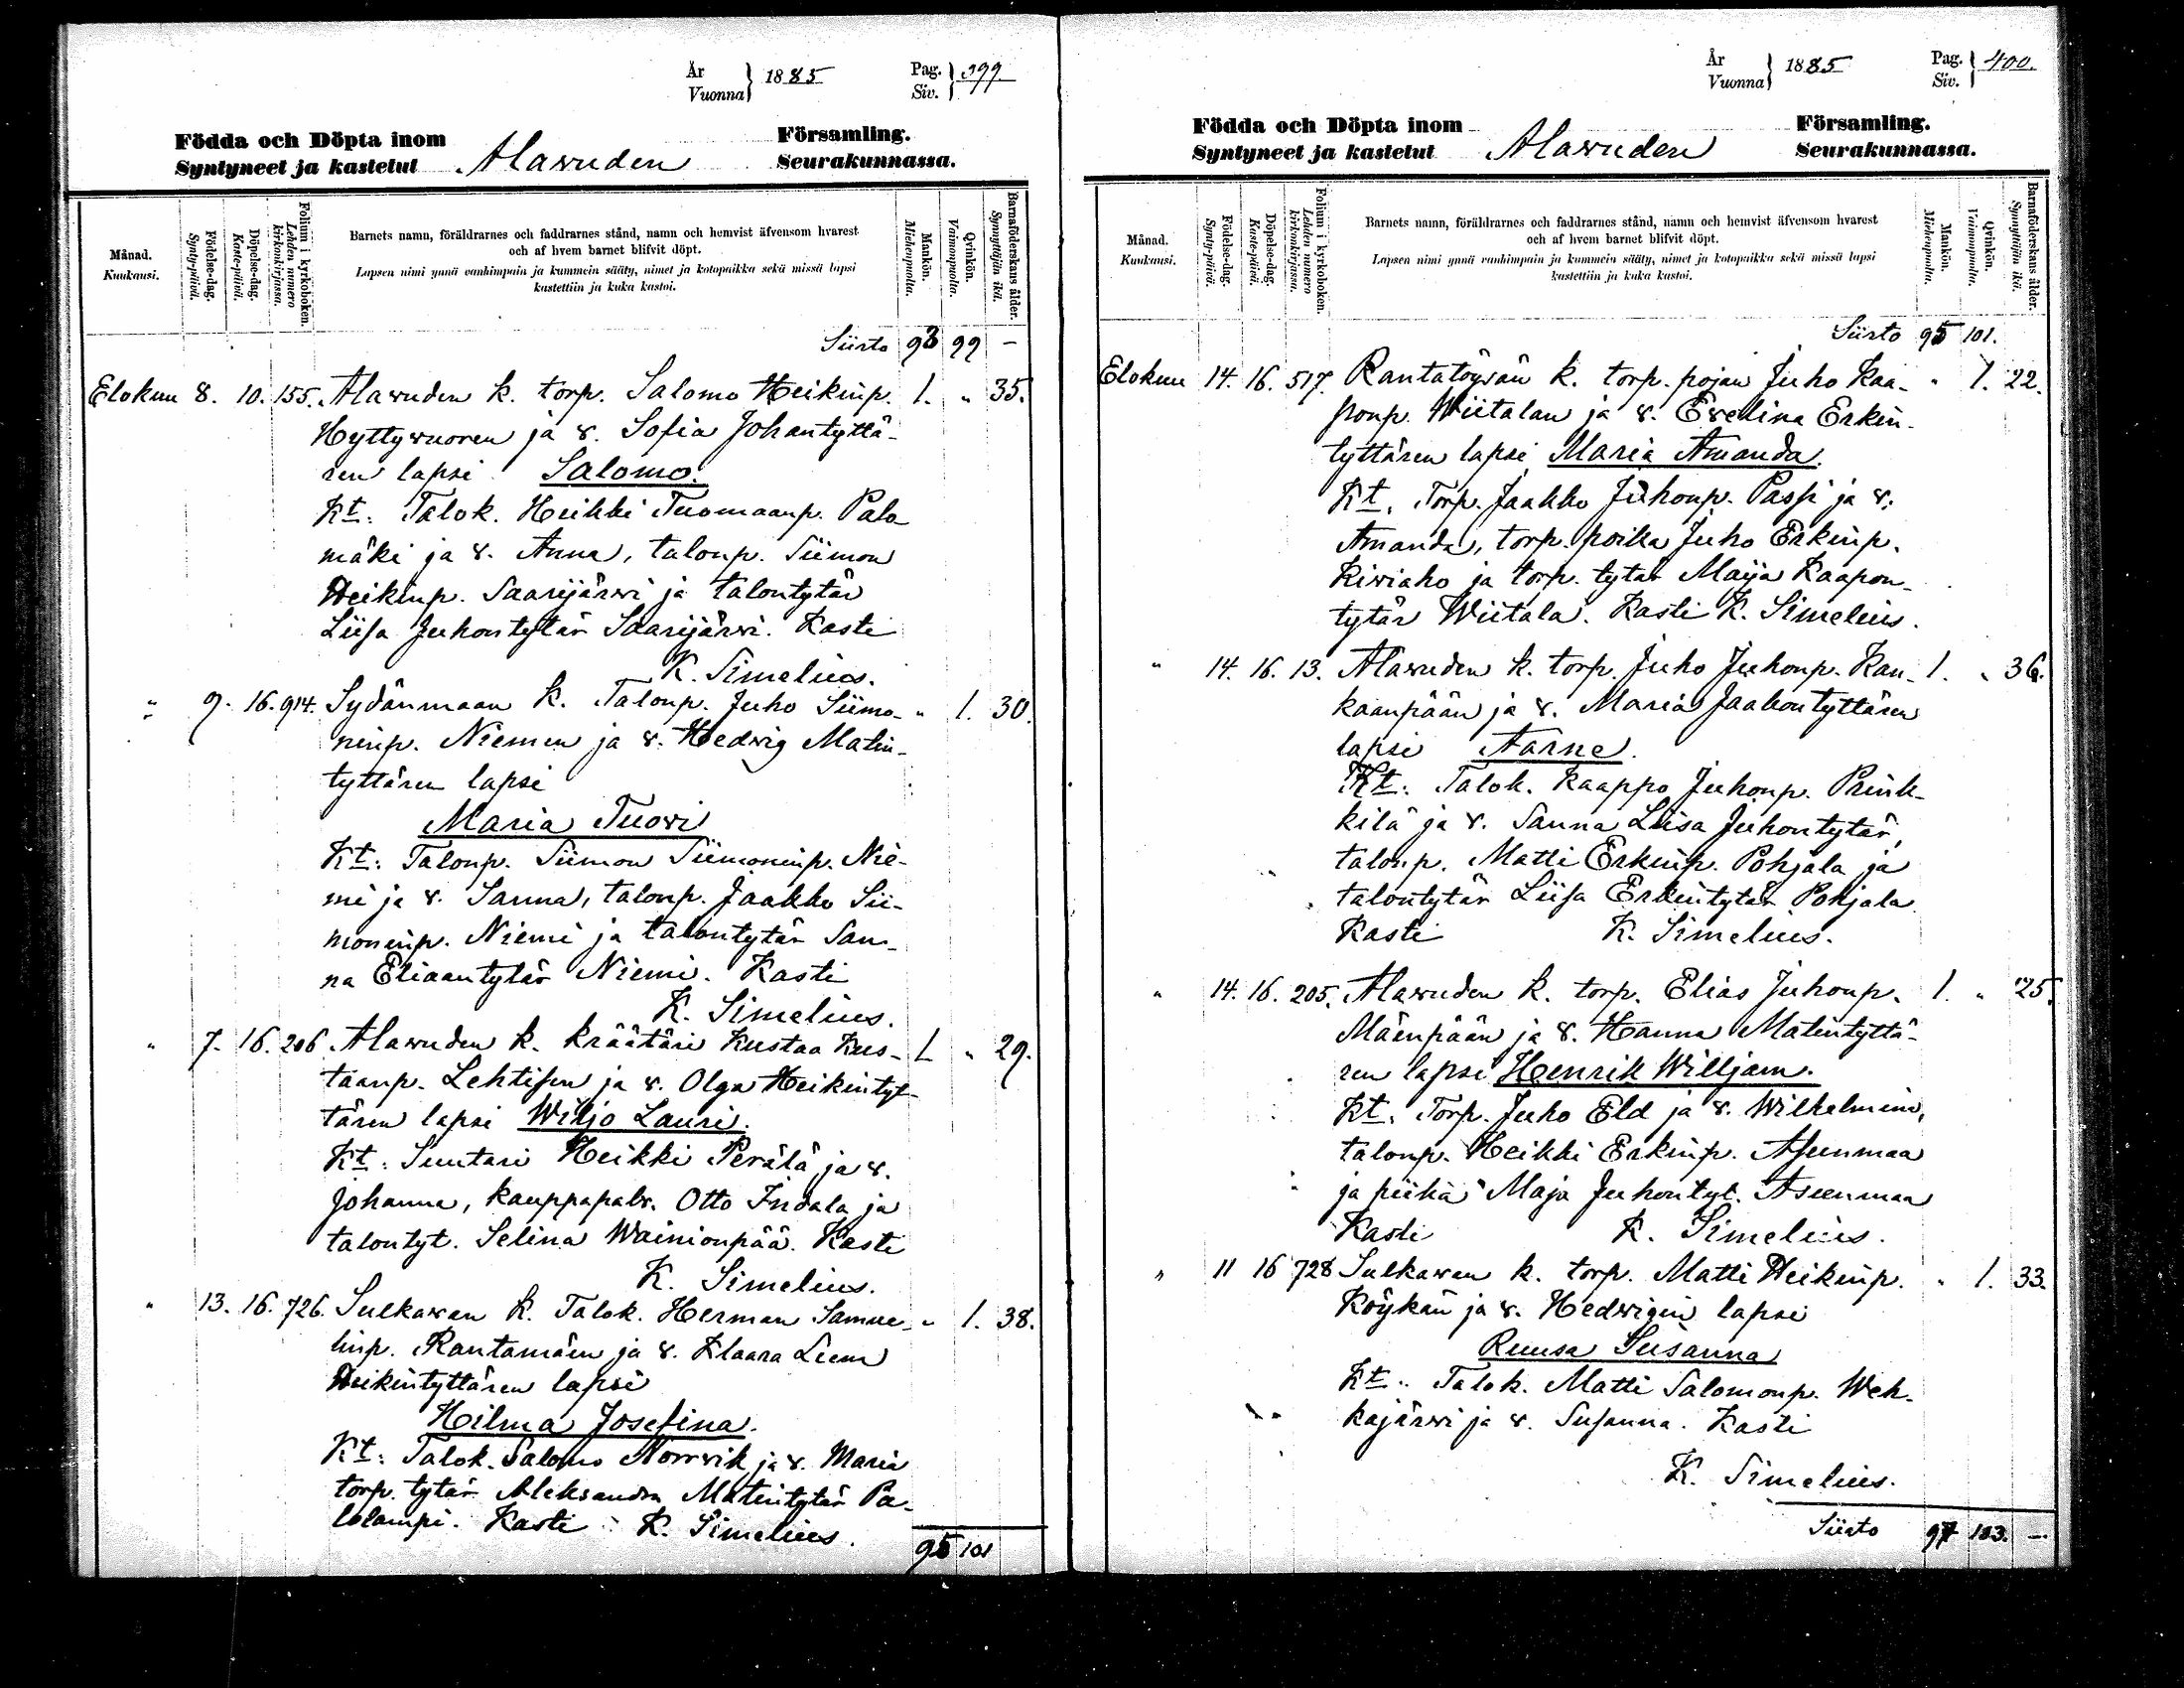 År
Vuonna } 1885
Pag.
Siv. } 399
Födda och Döpta inom
Syntyneet ja kastetut Alavuden
Församling.
Seurakunnassa.
Månad.
Kuukausi.
Födelse-dag.
Synty-päivä.
Döpelse-dag.
Kaste-päivä.
Folium i kyrkoboken.
Lehden numero kirkonkirjassa.
Barnets namn, föräldrarnes och faddrarnes stånd, namn och hemvist äfvensom hvarest
och af hvem barnet blifvit döpt.
Lapsen nimi ynnä vanhimpain ja kummein sääty, nimet ja kotopaikka sekä missä lapsi
kastettiin ja kuka kastoi.
Mankön.
Miehenpuolta.
Qvinkön.
Vaimonpuolta.
Barnaföderskans ålder.
Synnyttäjän ikä.
Siirto 93 99 -
Elokuu 8. 10. 155. Alawuden k. torp. Salomo Heikinp. 1. " 35.
Hyttywuoren ja v. Sofia Johantyttä-
ren lapsi Salomo.
Kt: Talok. Heikki Tuomaanp. Palo
mäki ja v. Anna, talonp. Siimon
Heikinp. Saarijärwi ja talontytär
Liisa Juhontytär Saarijärwi. Kasti
K. Simelius.
" 9. 16. 914. Sydänmaan k. Talonp. Juho Siimo- " 1. 30.
ninp. Niemen ja v. Hedwig Matin-
tyttären lapsi
Maria Tuowi
Kt: Talonp. Siimon Siimoninp. Nie-
mi ja v. Sanna, talonp. Jaakko Sii-
moninp. Niemi ja talontytär San-
na Eliaantytär Niemi. Kasti
K. Simelius.
" 7. 16. 206. Alawuden k. kräätäri Kustaa Kus- 1. " 29.
taanp. Lehtisen ja v. Olga Heikintyt-
tären lapsi Wiljo Lauri.
Kt: Suutari Heikki Perälä ja v.
Johanna, kauppapalv. Otto Indala ja
talontyt. Selina Wainionpää. Kasti
K. Simelius.
" 13. 16. 726. Sulkawan k. Talok. Herman Samue- " 1. 38.
linp. Rantamäen ja v. Klaara Leena
Heikintyttären lapsi
Hilma Josefina.
Kt: Talok. Salomo Norrvik ja v. Maria
torp. tytär Aleksandra Matintytär Pa-
lolampi. Kasti K. Simelius.
95 101
År
Vuonna } 1885
Pag.
Siv. } 400.
Födda och Döpta inom
Syntyneet ja kastetut Alawuden
Församling.
Seurakunnassa.
Månad.
Kuukausi.
Födelse-dag.
Synty-päivä.
Döpelse-dag.
Kaste-päivä.
Folium i kyrkoboken.
Lehden numero kirkonkirjassa.
Barnets namn, föräldrarnes och faddrarnes stånd, namn och hemvist äfvensom hvarest
och af hvem barnet blifvit döpt.
Lapsen nimi ynnä vanhimpain ja kummein sääty, nimet ja kotopaikka sekä missä lapsi
kastettiin ja kuka kastoi.
Mankön.
Miehenpuolta.
Qvinkön.
Vaimonpuolta.
Barnaföderskans ålder.
Synnyttäjän ikä.
Siirto 95 101.
Elokuu 14. 16. 517. Rantatöysän k. torp. pojan Juho Kaa- " 1. 22.
ponp. Wiitalan ja v. Ewelina Erkin-
tyttären lapsi Maria Amanda.
Kt. Torp. Jaakko Juhonp. Passi ja v.
Amanda, torp. poika Juho Erkinp.
Kiwiaho ja torp. tytär Maija Kaapon-
tytär Wiitala. Kasti K. Simelius.
" 14. 16. 13. Alawuden k. torp. Juho Juhonp. Kan- 1. " 36.
kaanpään ja v. Maria Jaakontyttären
lapsi Aarne.
Kt: Talok. Kaappo Juhonp. Prink-
kilä ja v. Sanna Liisa Juhontytär,
talonp. Matti Erkinp. Pohjala ja
talontytär Liisa Erkintytär Pohjala
Kasti K. Simelius.
" 14. 16. 205. Alawuden k. torp. Elias Juhonp. 1. " 25.
Mäenpään ja v. Hanna Matintyttä-
ren lapsi Henrik Willijam.
Kt. Torp. Juho Eld ja v. Wilhelmina,
talonp. Heikki Erkinp. Asunmaa
ja piika Maja Juhontyt. Asunmaa
Kasti K. Simelius.
" 11 16 728 Sulkawan k. torp. Matti Heikinp. " 1. 33.
Köykän ja v. Hedwigin lapsi
Ruusa Susanna
Kt: Talok. Matti Salomonp. Weh-
kajärwi ja v. Susanna. Kasti
K. Simelius.
Siirto 97 103. -